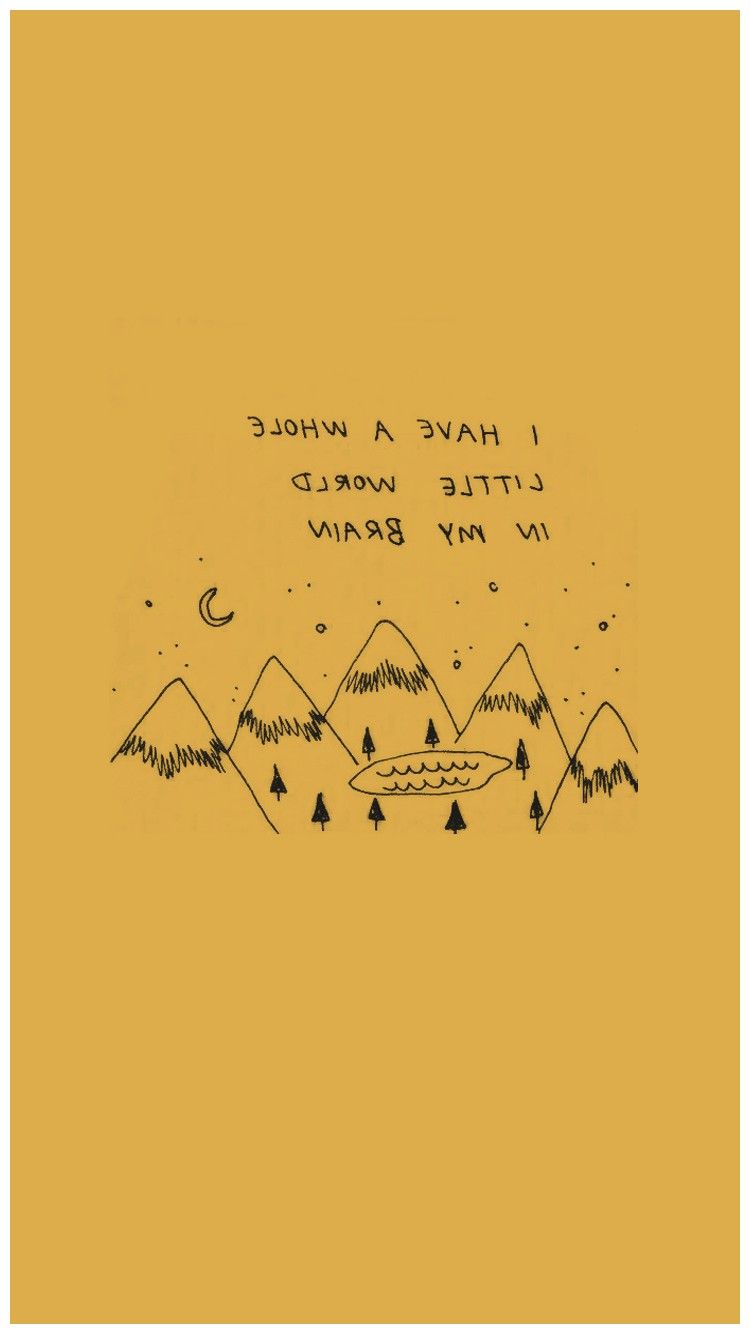 I HAVE A WHOLE
LITTLE WORLD
IN MY BRAIN